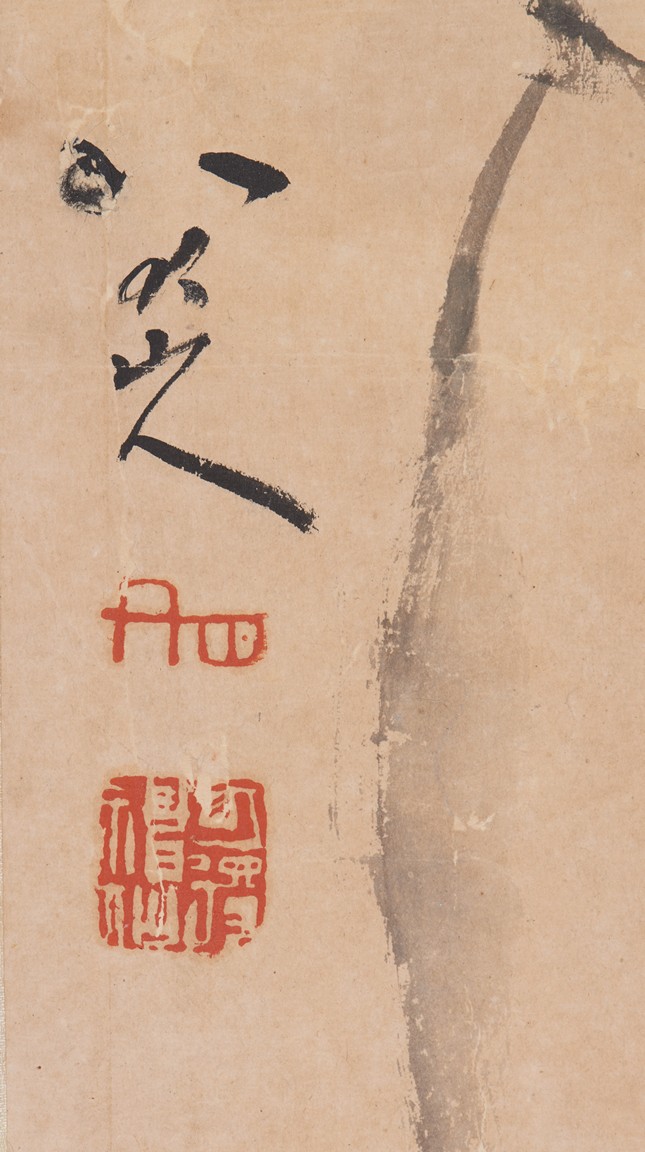 八大山人
可得神仙